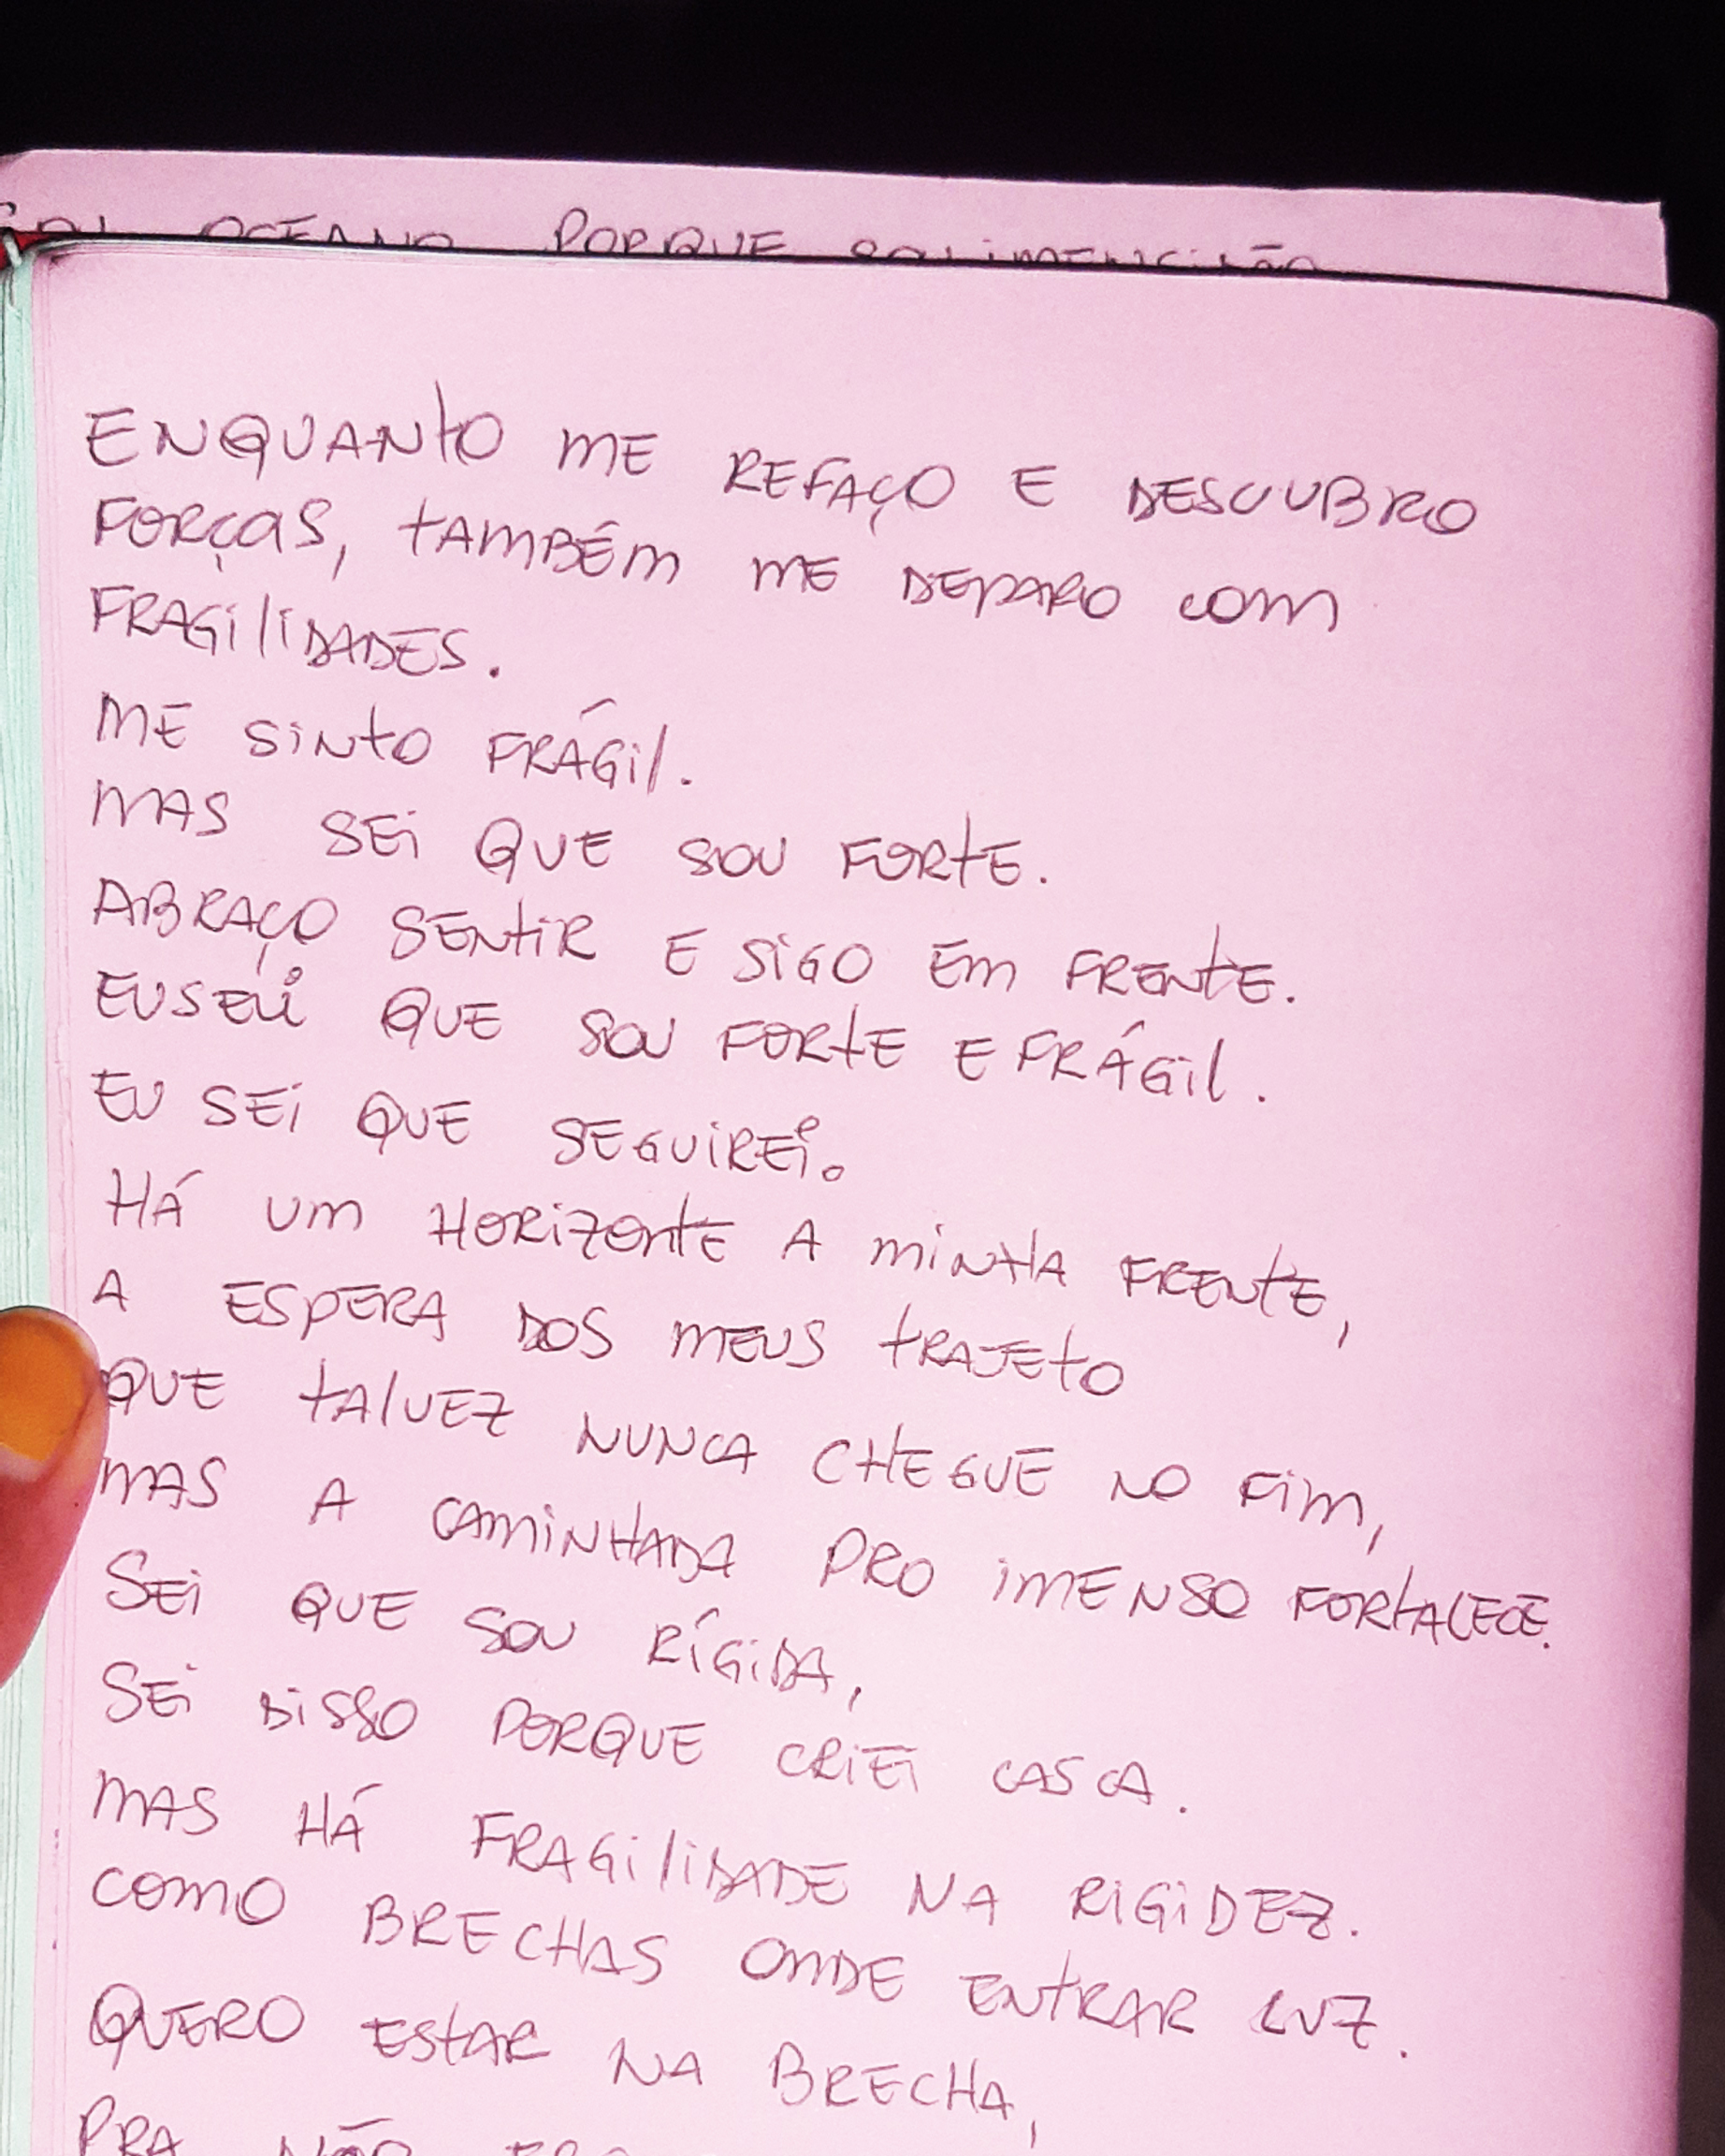 OCEANO PORQUE SOU IMENSIDÃO
ENQUANTO ME REFAÇO E DESCUBRO
FORÇAS, TAMBÉM ME DEPARO COM
FRAGILIDADES.
ME SINTO FRÁGIL.
MAS SEI QUE SOU FORTE.
ABRAÇO SENTIR E SIGO EM FRENTE.
EU SEI QUE SOU FORTE E FRÁGIL.
EU SEI QUE SEGUIREI.
HÁ UM HORIZONTE A MINHA FRENTE,
A ESPERA DOS MEUS TRAJETO
QUE TALVEZ NUNCA CHEGUE NO FIM,
MAS A CAMINHADA PRO IMENSO FORTALECE.
SEI QUE SOU RÍGIDA,
SEI DISSO PORQUE CRIEI CASCA.
MAS HÁ FRAGILIDADE NA RIGIDEZ.
COMO BRECHAS ONDE ENTRAR LUZ.
QUERO ESTAR NA BRECHA,
PRA NÃO